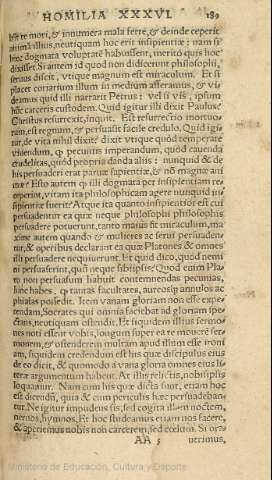 HOMILIA XXXVI 189
se te mori, & innumera mala ferre, & deinde ceperit
alienā illius, neutiquam hoc erit insipientiæ : nam si
hæc dogmata voluptatē habuissent, meritò quis hoc
dixisset. Si autem id quod non didicerunt philosophi,
seruus discit, vtique magnum est miraculum. Et si
placet coriarium illum in medium afferamus, & vi-
deamus quid illi narrarit Petrus : vel si vis, ipsum
hūc carceris custodem. Quid igitur illi dixit Paulus?
Christus resurrexit, inquit. Est resurrectio mortuo-
rum, est regnum, & persuasit facile credulo. Quid igi-
tur, de vita nihil dixit? dixit vtique quòd temperatè
viuendum, quòd pecuniis imperandum, quòd cauenda
crudelitas, quòd propria danda aliis : nunquid & de
his persuaderi erat paruæ sapientiæ, & nō magnæ ani
mæ? Esto autem quòd illi dogmata per insipientiam re-
ceperint, vitam ita philosophicam agere nunquid in-
sipientiæ fuerit? Atque ita quanto insipientior est cui
persuadentur ea quæ neque philosophi philosophis
persuadere potuerunt, tanto maius & miraculum, ma
ximè autem quando & mulieres ac serui persuaden-
tur, & operibus declarant ea quæ Platones & omnes
illi persuadere nequiuerunt. Et quid dico, quòd nemi
ni persuaserint, quòd neque sibiipsis? Quòd enim Pla-
to non persuasum habuit contemnendas pecunias,
hinc habes, quòd tantas facultates, aureosque annulos ac
phialas possedit. Item vanam gloriam non esse expe-
tendam, Socrates qui omnia faciebat ad gloriam spe-
ctans, neutiquam ostendit. Et siquidem illius sermo-
nes noti essent vobis, longum super ea re mouere ser
monem, & ostenderem multam apud illum esse ironi
am, siquidem credendum est his quæ discipulus eius
de eo dicit, & quomodo à vana gloria omnes eius li-
teræ argumentum habent. At illis relictis, nobisipsis
loquamur. Nam cum his quæ dicta sunt, etiam hoc
est dicendū, quia & cum periculis hæc persuadeban
tur. Ne igitur impudens sis, sed cogita illam noctem,
neruos, hymnos. Et hoc studeamus etiam nos facere,
& aperiemus nobis non carcerem, sed cœlum. Si ora
AA 5 uerimus,
Ministerio de Educación, Cultura y Deporte